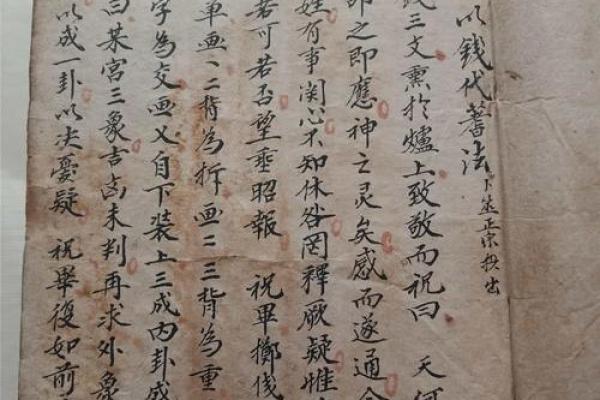 以錢代蓍法
卜筮正宗抄出
錢三文熏於爐上致敬而祝曰 天何
叩之即應神之灵矣感而遂通今
姓有事関心不知休咎罔釋厥疑惟
若可若否望垂昭報 祝畢擲錢
單画、二背為拆画二三背為重
字為交画乂自下装上三成內卦
曰某宮三象吉凶未判再求外象
以成一卦以决憂疑 祝畢復如前